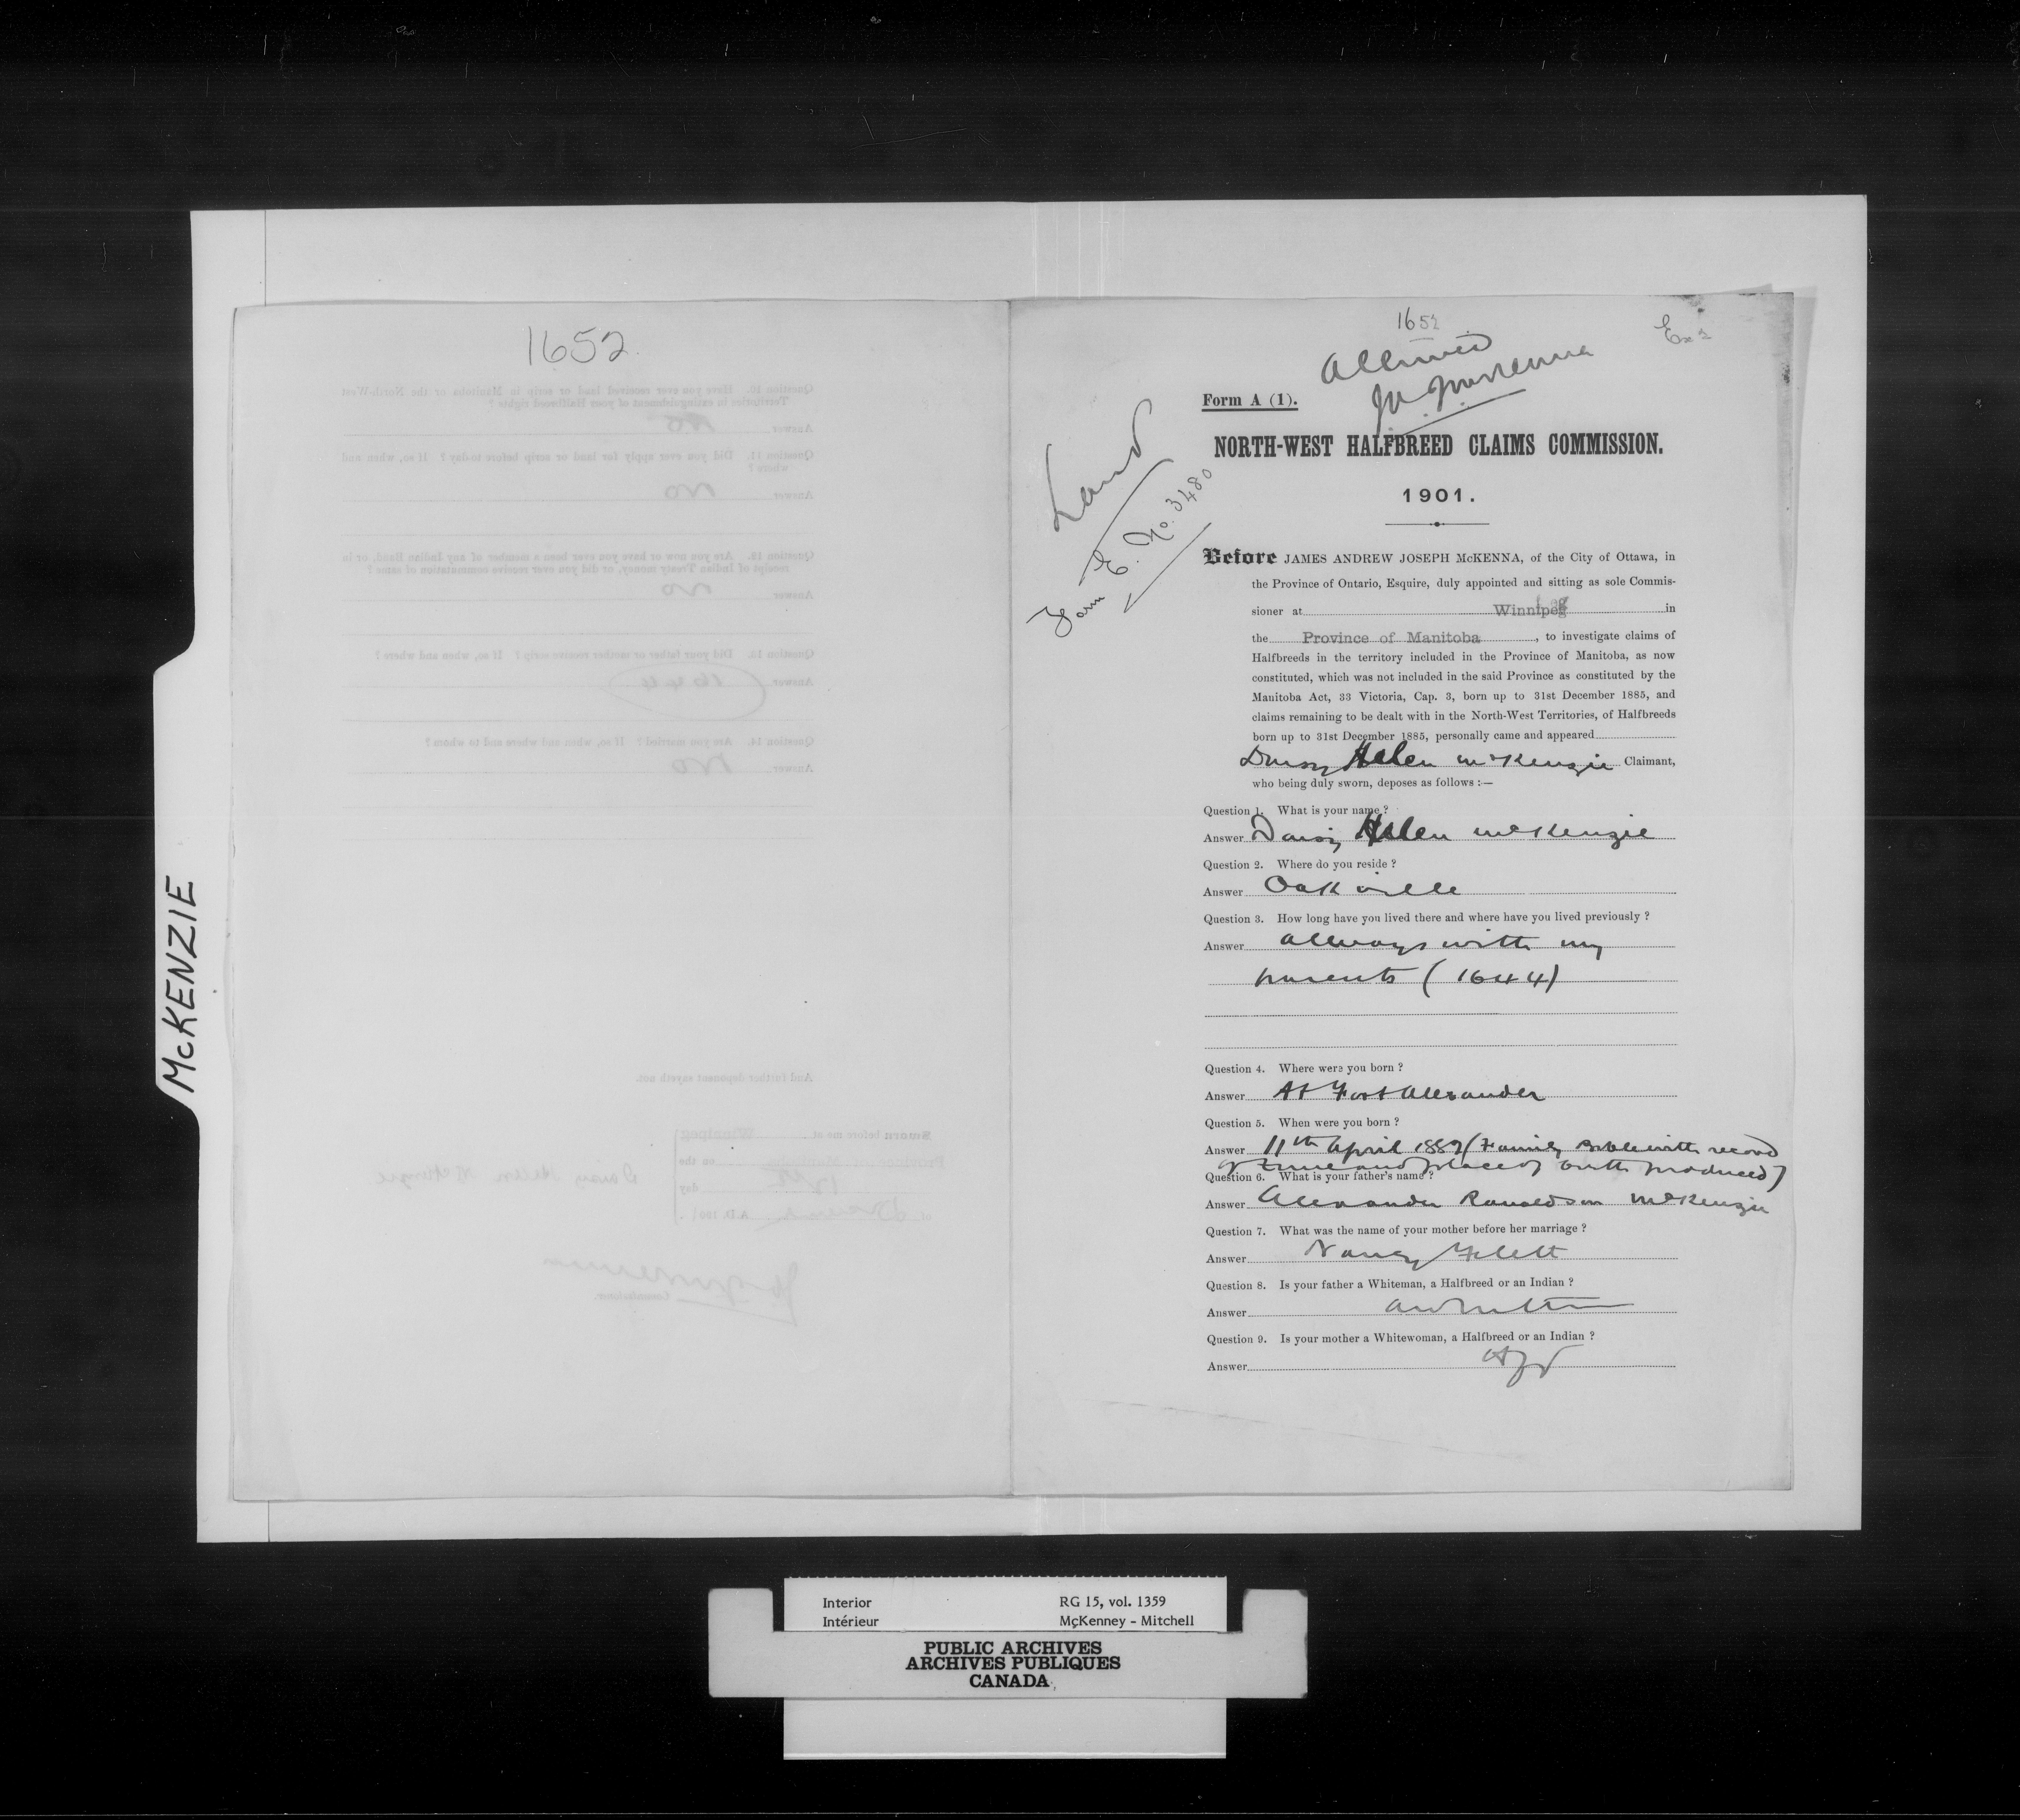 McKENZIE
1652
1652
Ex 2
Allowed
JAJ McKenna
Land
Form E. No. 3480
Form A (1).
NORTH-WEST HALFBREED CLAIMS COMMISSION.
1901.
Before JAMES ANDREW JOSEPH McKENNA, of the City of Ottawa, in
the Province of Ontario, Esquire, duly appointed and sitting as sole Commis-
sioner at Winnipeg in
the Province of Manitoba, to investigate claims of
Halfbreeds in the territory included in the Province of Manitoba, as now
constituted, which was not included in the said Province as constituted by the
Manitoba Act, 33 Victoria, Cap. 3, born up to 31st December 1885, and
claims remaining to be dealt with in the North-West Territories, of Halfbreeds
born up to 31st December 1885, personally came and appeared
Daisy Helen McKenzie Claimant,
who being duly sworn, deposes as follows :—
Question 1. What is your name ?
Answer Daisy Helen McKenzie
Question 2. Where do you reside ?
Answer Oakville
Question 3. How long have you lived there and where have you lived previously ?
Answer allways with my
parents (1644)
Question 4. Where were you born ?
Answer At Fort Alexander
Question 5. When were you born ?
Answer 11th April 1882 (Family Bible with record
of time and place of birth produced)
Question 6. What is your father's name ?
Answer Alexander Ronaldson McKenzie
Question 7. What was the name of your mother before her marriage ?
Answer Nancy Flett
Question 8. Is your father a Whiteman, a Halfbreed or an Indian ?
Answer
Question 9. Is your mother a Whitewoman, a Halfbreed or an Indian ?
Answer
Question 10. Have you ever received land or scrip in Manitoba or the North-West
Territories in extinguishment of your Halfbreed rights ?
Answer No
Question 11. Did you ever apply for land or scrip before to-day ? If so, when and
where ?
Answer No
Question 12. Are you now or have you ever been a member of any Indian Band, or in
receipt of Indian Treaty money, or did you ever receive commutation of same ?
Answer No
Question 13. Did your father or mother receive scrip ? If so, when and where ?
Answer 1644
Question 14. Are you married ? If so, when and where and to whom ?
Answer No
And further deponent sayeth not.
Sworn before me at Winnipeg
Province of Manitoba on the
day
of A.D. 1901.
Daisy Helen McKenzie
JAJ McKenna
Commissioner.
Interior RG 15, vol. 1359
Intérieur McKenney - Mitchell
PUBLIC ARCHIVES
ARCHIVES PUBLIQUES
CANADA